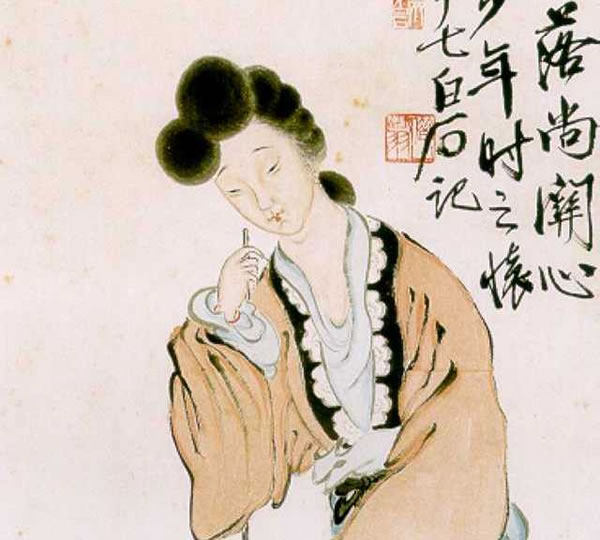 落尚關心
少年时之懷
七白石記